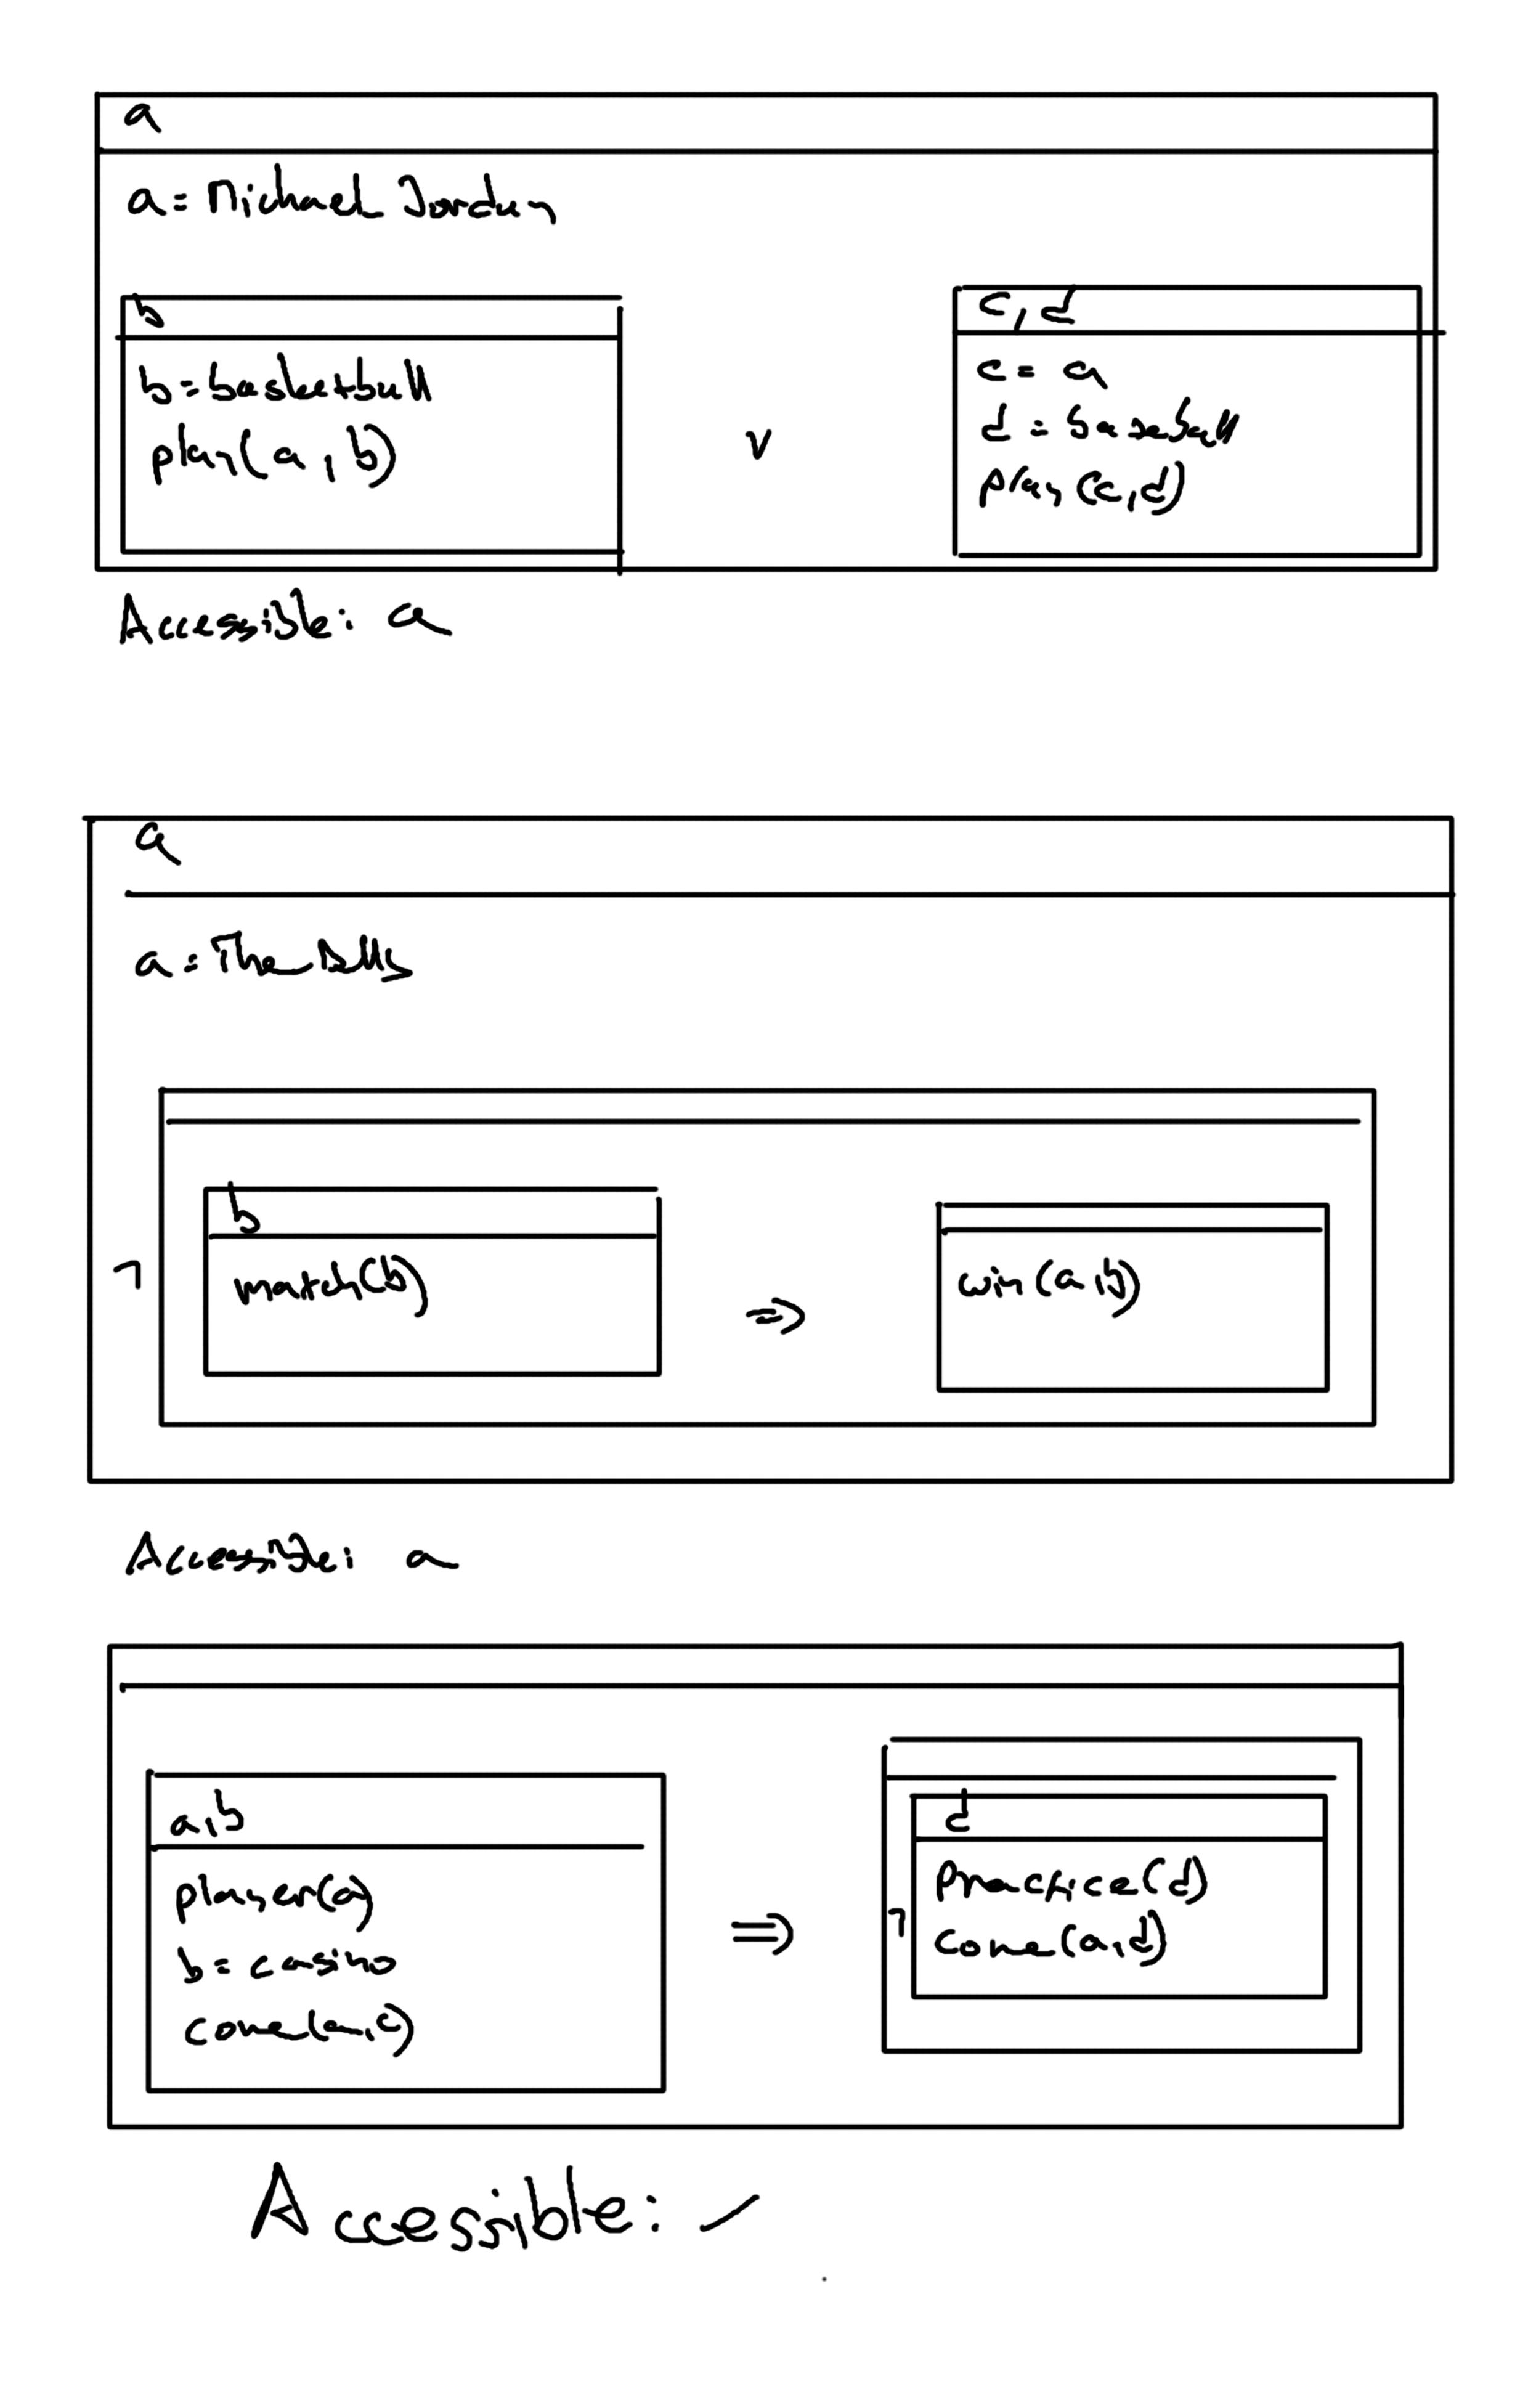 a
a = Michael Jordan
b
b = basketball
play(a, b)
v
c, d
c = a
d = baseball
play(c, d)
Accessible: a
a
a = The Bulls
¬
b
match(b)
⇒
win(a, b)
Accessible: a
a, b
player(a)
b = casino
come(a, c)
⇒
¬
d
practice(d)
come(a, d)
Accessible: –